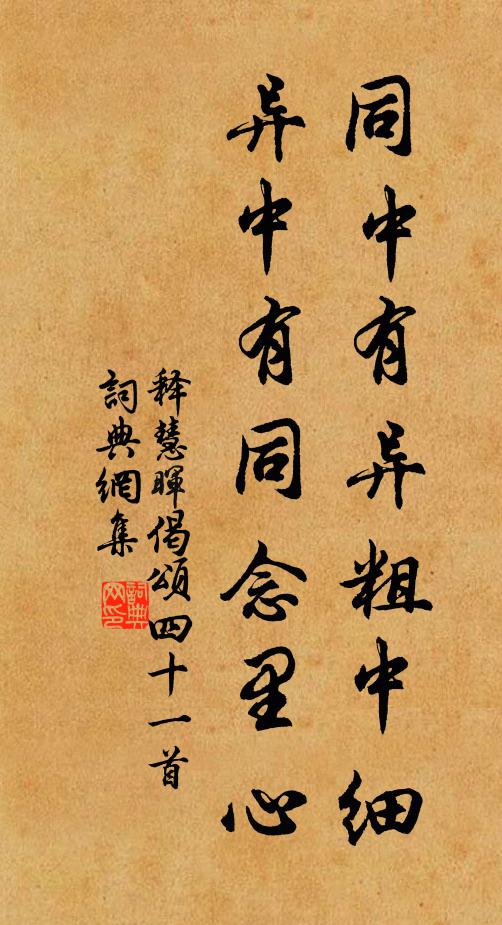 同中有异粗中细
异中有同念里心
释慧晖偈頌四十一首
詞典網集
詞典网印